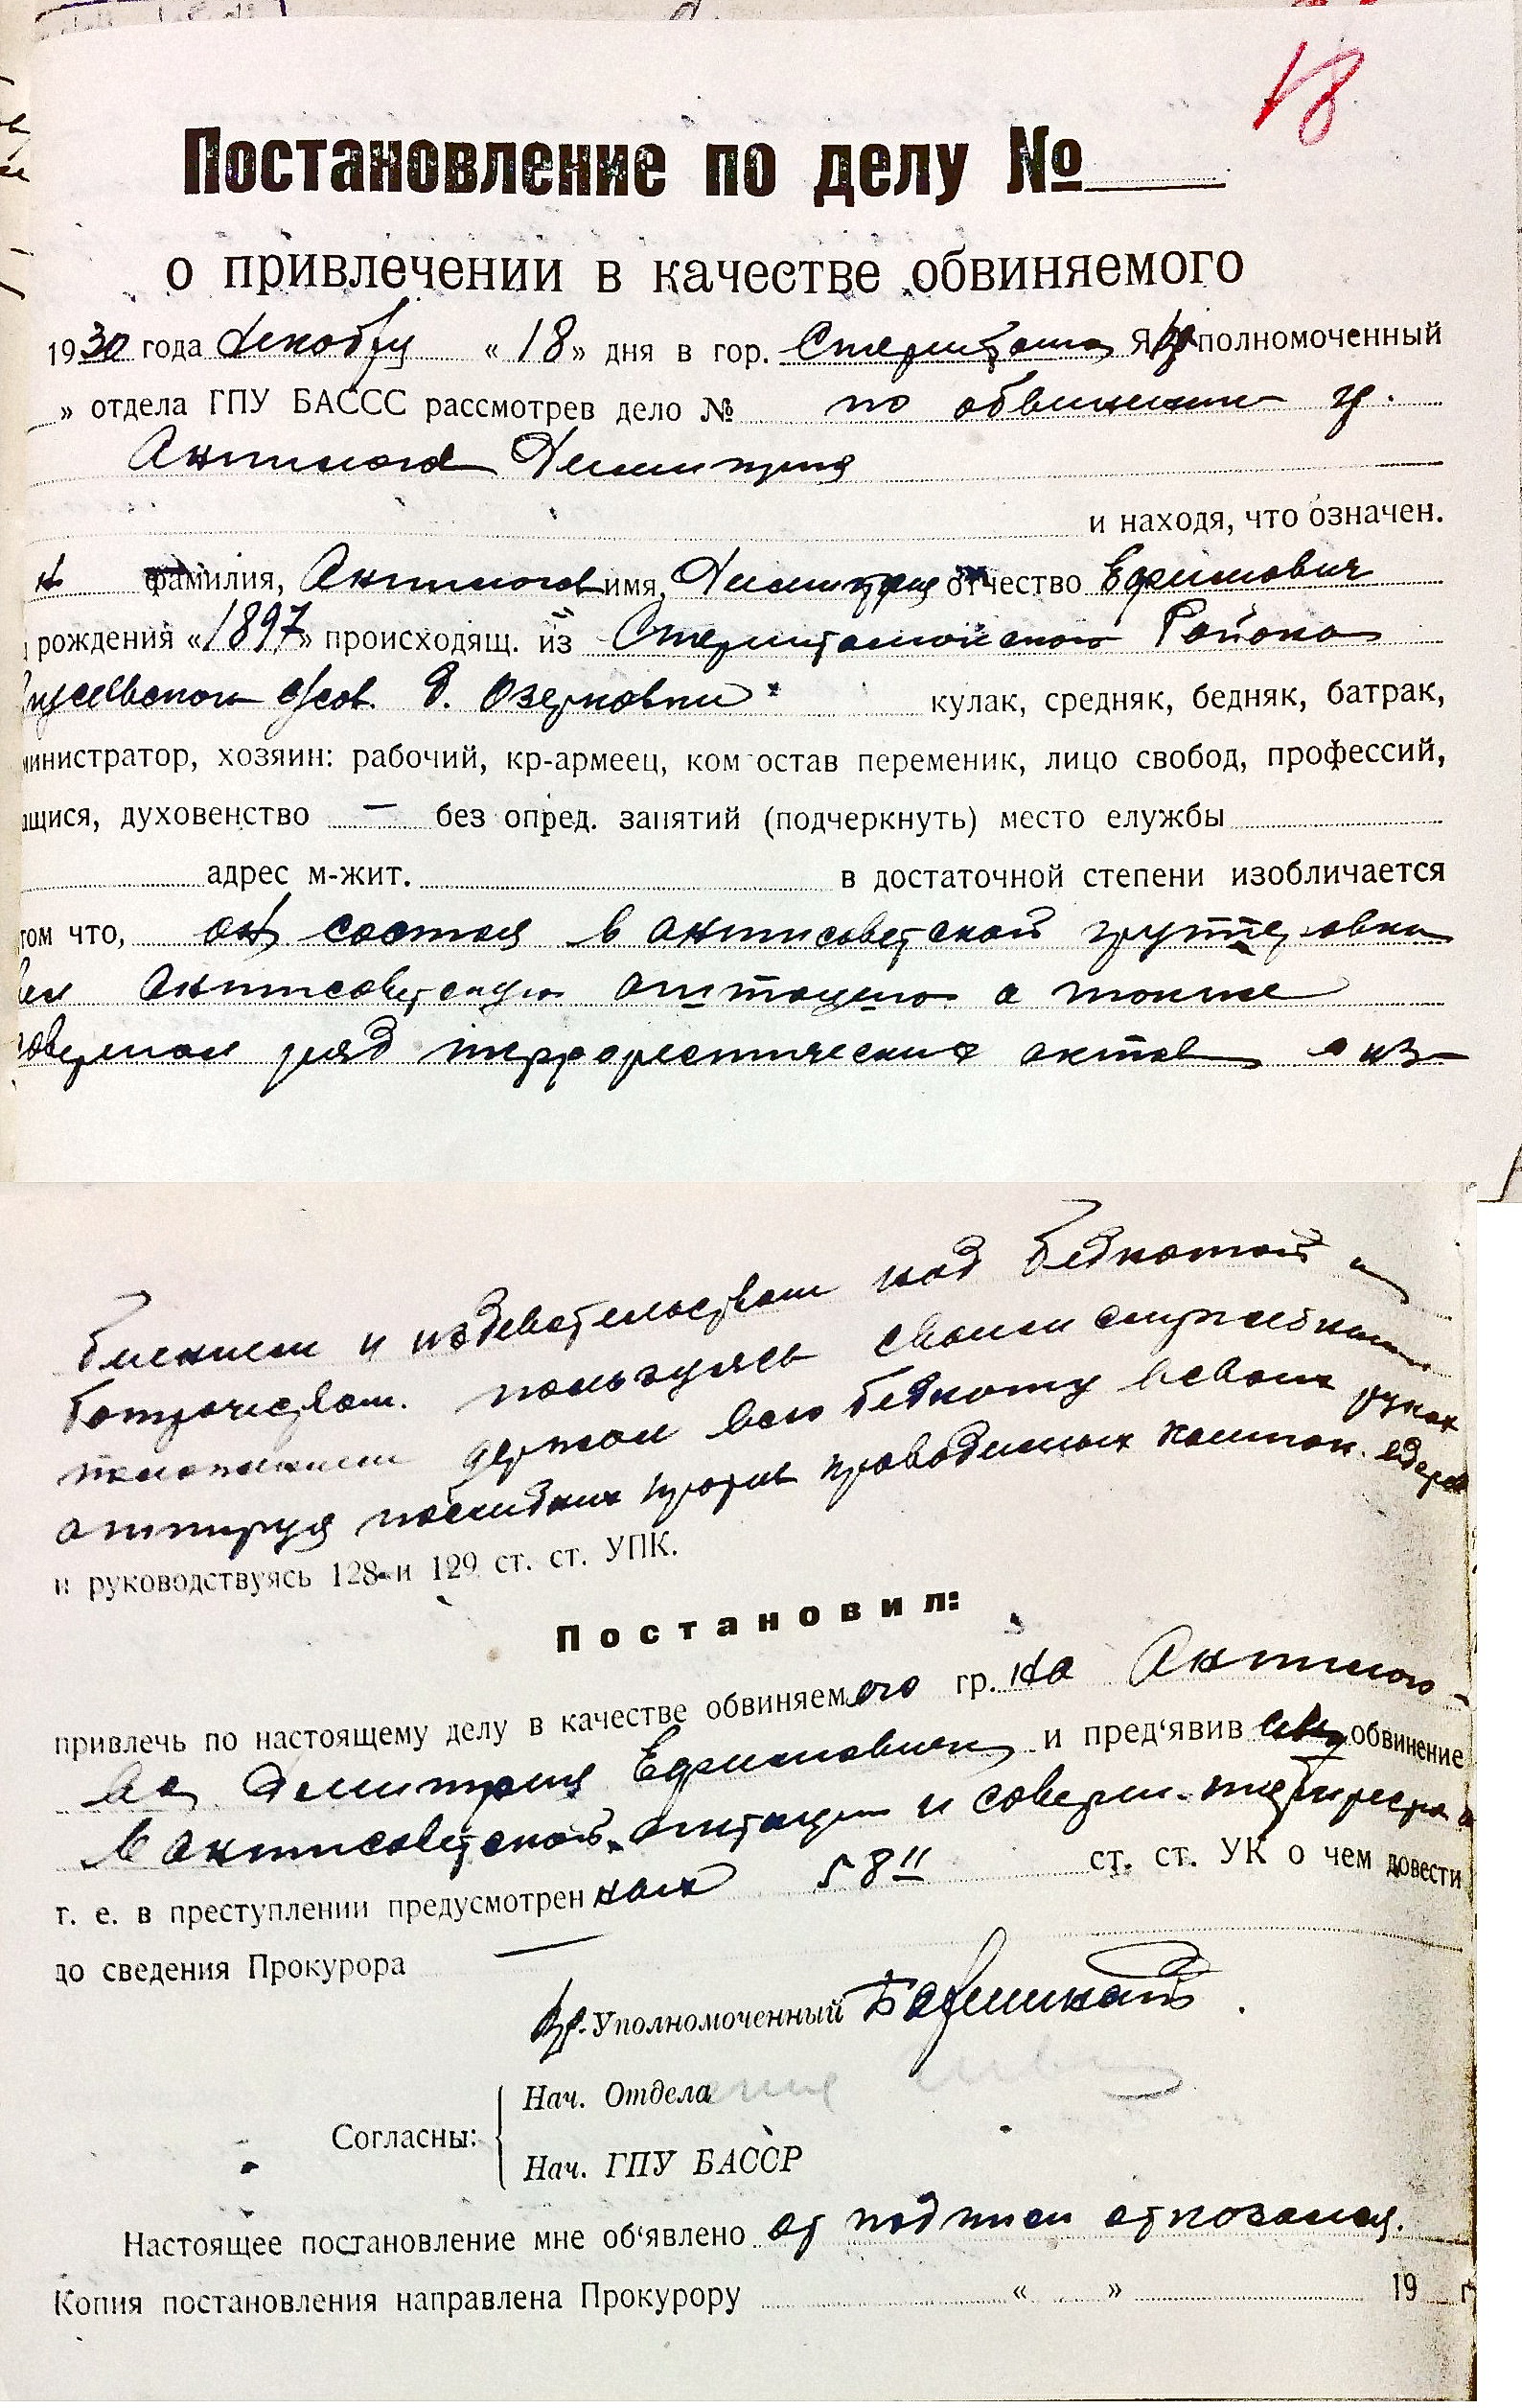 18
Постановление по делу №
о привлечении в качестве обвиняемого
1930 года Декабря «18» дня в гор. Стерлитамак Я Уполномоченный
» отдела ГПУ БАССС рассмотрев дело № по обвинению гр.
Антипова Демитрия
и находя, что означен.
н фамилия, Антипов имя, Демитрий отчество Ефимович
рождения «1897» происходящ. из Стерлитамакского Района
с/сов. д. Озерковки кулак, средняк, бедняк, батрак,
министратор, хозяин: рабочий, кр-армеец, ком остав переменик, лицо свобод, профессий,
ащися, духовенство — без опред. занятий (подчеркнуть) место елужбы
адрес м-жит. в достаточной степени изобличается
том что, он состоя в антисоветской группировки
вел антисоветскую агитацию а также
совершал ряд террористических актов с из-
биением и издевательством над беднотой и
батрачеством. пользуясь своим служебным
положением держал всю бедноту в своих руках
агитируя последних против проводимых кампан.
и руководствуясь 128 и 129 ст. ст. УПК.
Постановил:
привлечь по настоящему делу в качестве обвиняемого гр. на Антипо-
ва Демитрия Ефимовича и пред‘явив ему обвинение
в антисоветской агитации и соверш.
т. е. в преступлении предусмотренном 58¹¹ ст. ст. УК о чем довести
до сведения Прокурора —
Уполномоченный
Нач. Отдела
Согласны:
Нач. ГПУ БАССР
Настоящее постановление мне об‘явлено от подписи отказался.
Копия постановления направлена Прокурору « » 19 г